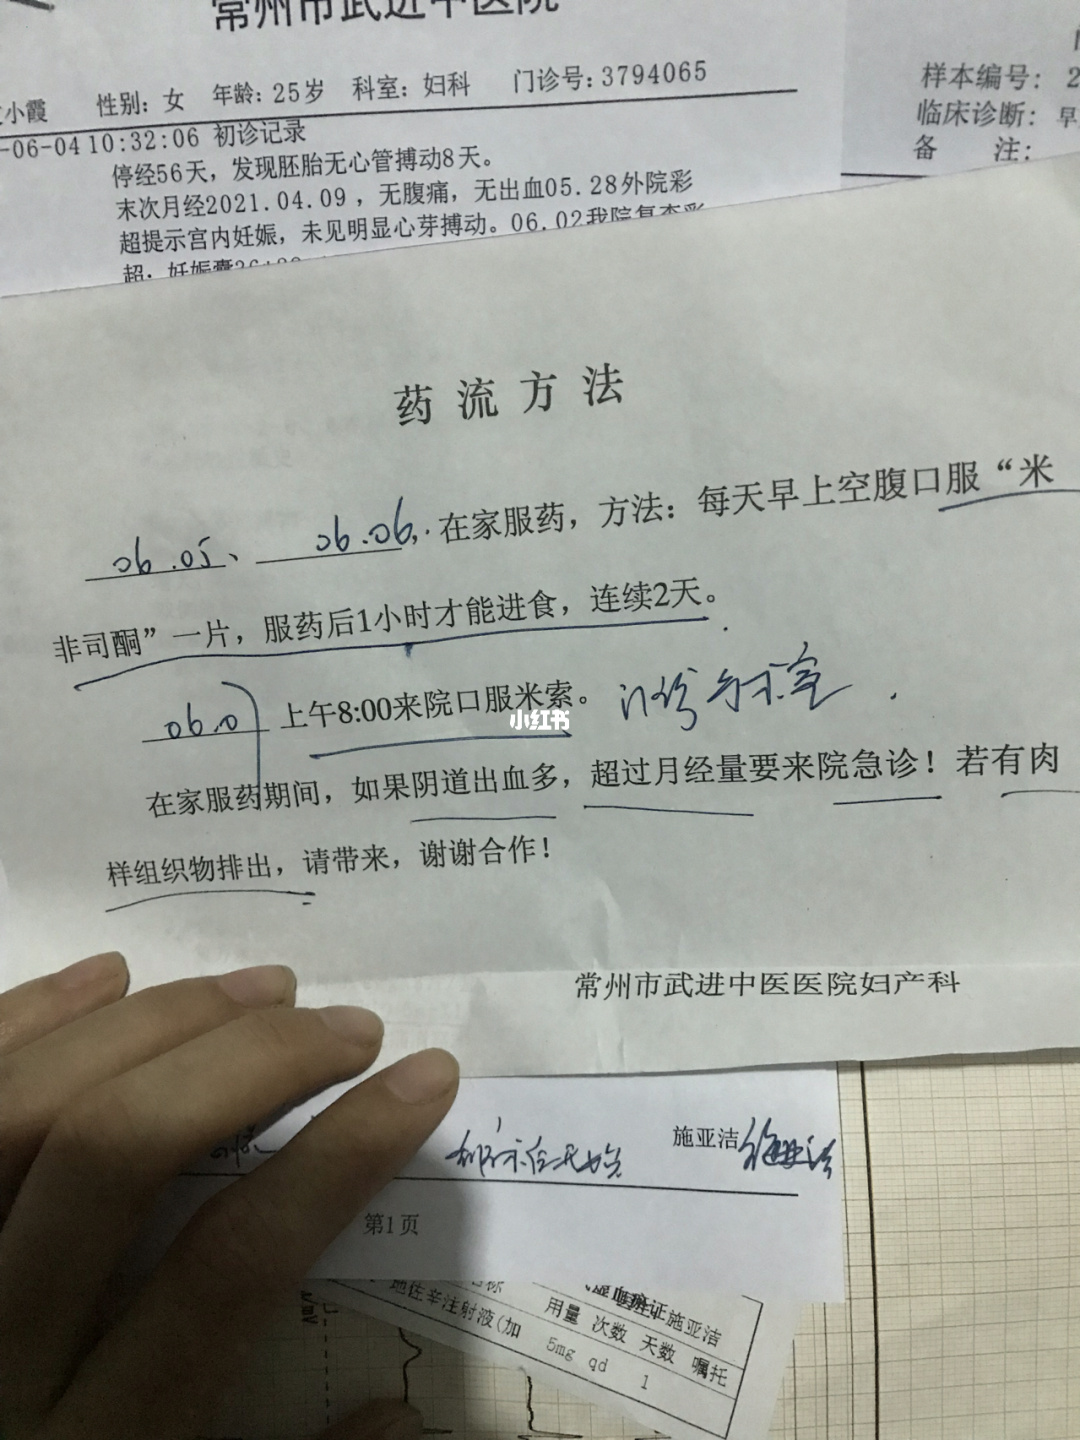 常州市武进中医院
小霞 性别：女 年龄：25岁 科室：妇科 门诊号：3794065
-06-04 10:32:06 初诊记录
停经56天，发现胚胎无心管搏动8天。
末次月经2021.04.09，无腹痛，无出血05.28外院彩
超提示宫内妊娠，未见明显心芽搏动。06.02我院复查彩
超：妊娠囊
样本编号：2
临床诊断：早
备 注：
药流方法
06.05、 06.06，在家服药，方法：每天早上空腹口服“米
非司酮”一片，服药后1小时才能进食，连续2天。
06.07 上午8:00来院口服米索。 门诊手术室.
小红书
在家服药期间，如果阴道出血多，超过月经量要来院急诊！若有肉
样组织物排出，请带来，谢谢合作！
常州市武进中医医院妇产科
施亚洁 施亚洁
第1页
施亚洁
用量 次数 天数 嘱托
地佐辛注射液(加 5mg qd 1